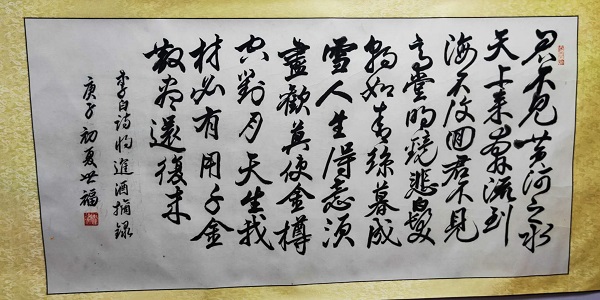 君不见黄河之水
天上来奔流到
海不復回君不見
高堂明鏡悲白髮
朝如青絲暮成
雪人生得意须
盡歡莫使金樽
空對月天生我
材必有用千金
散盡還復来
李白詩將進酒摘録
庚子初夏世福